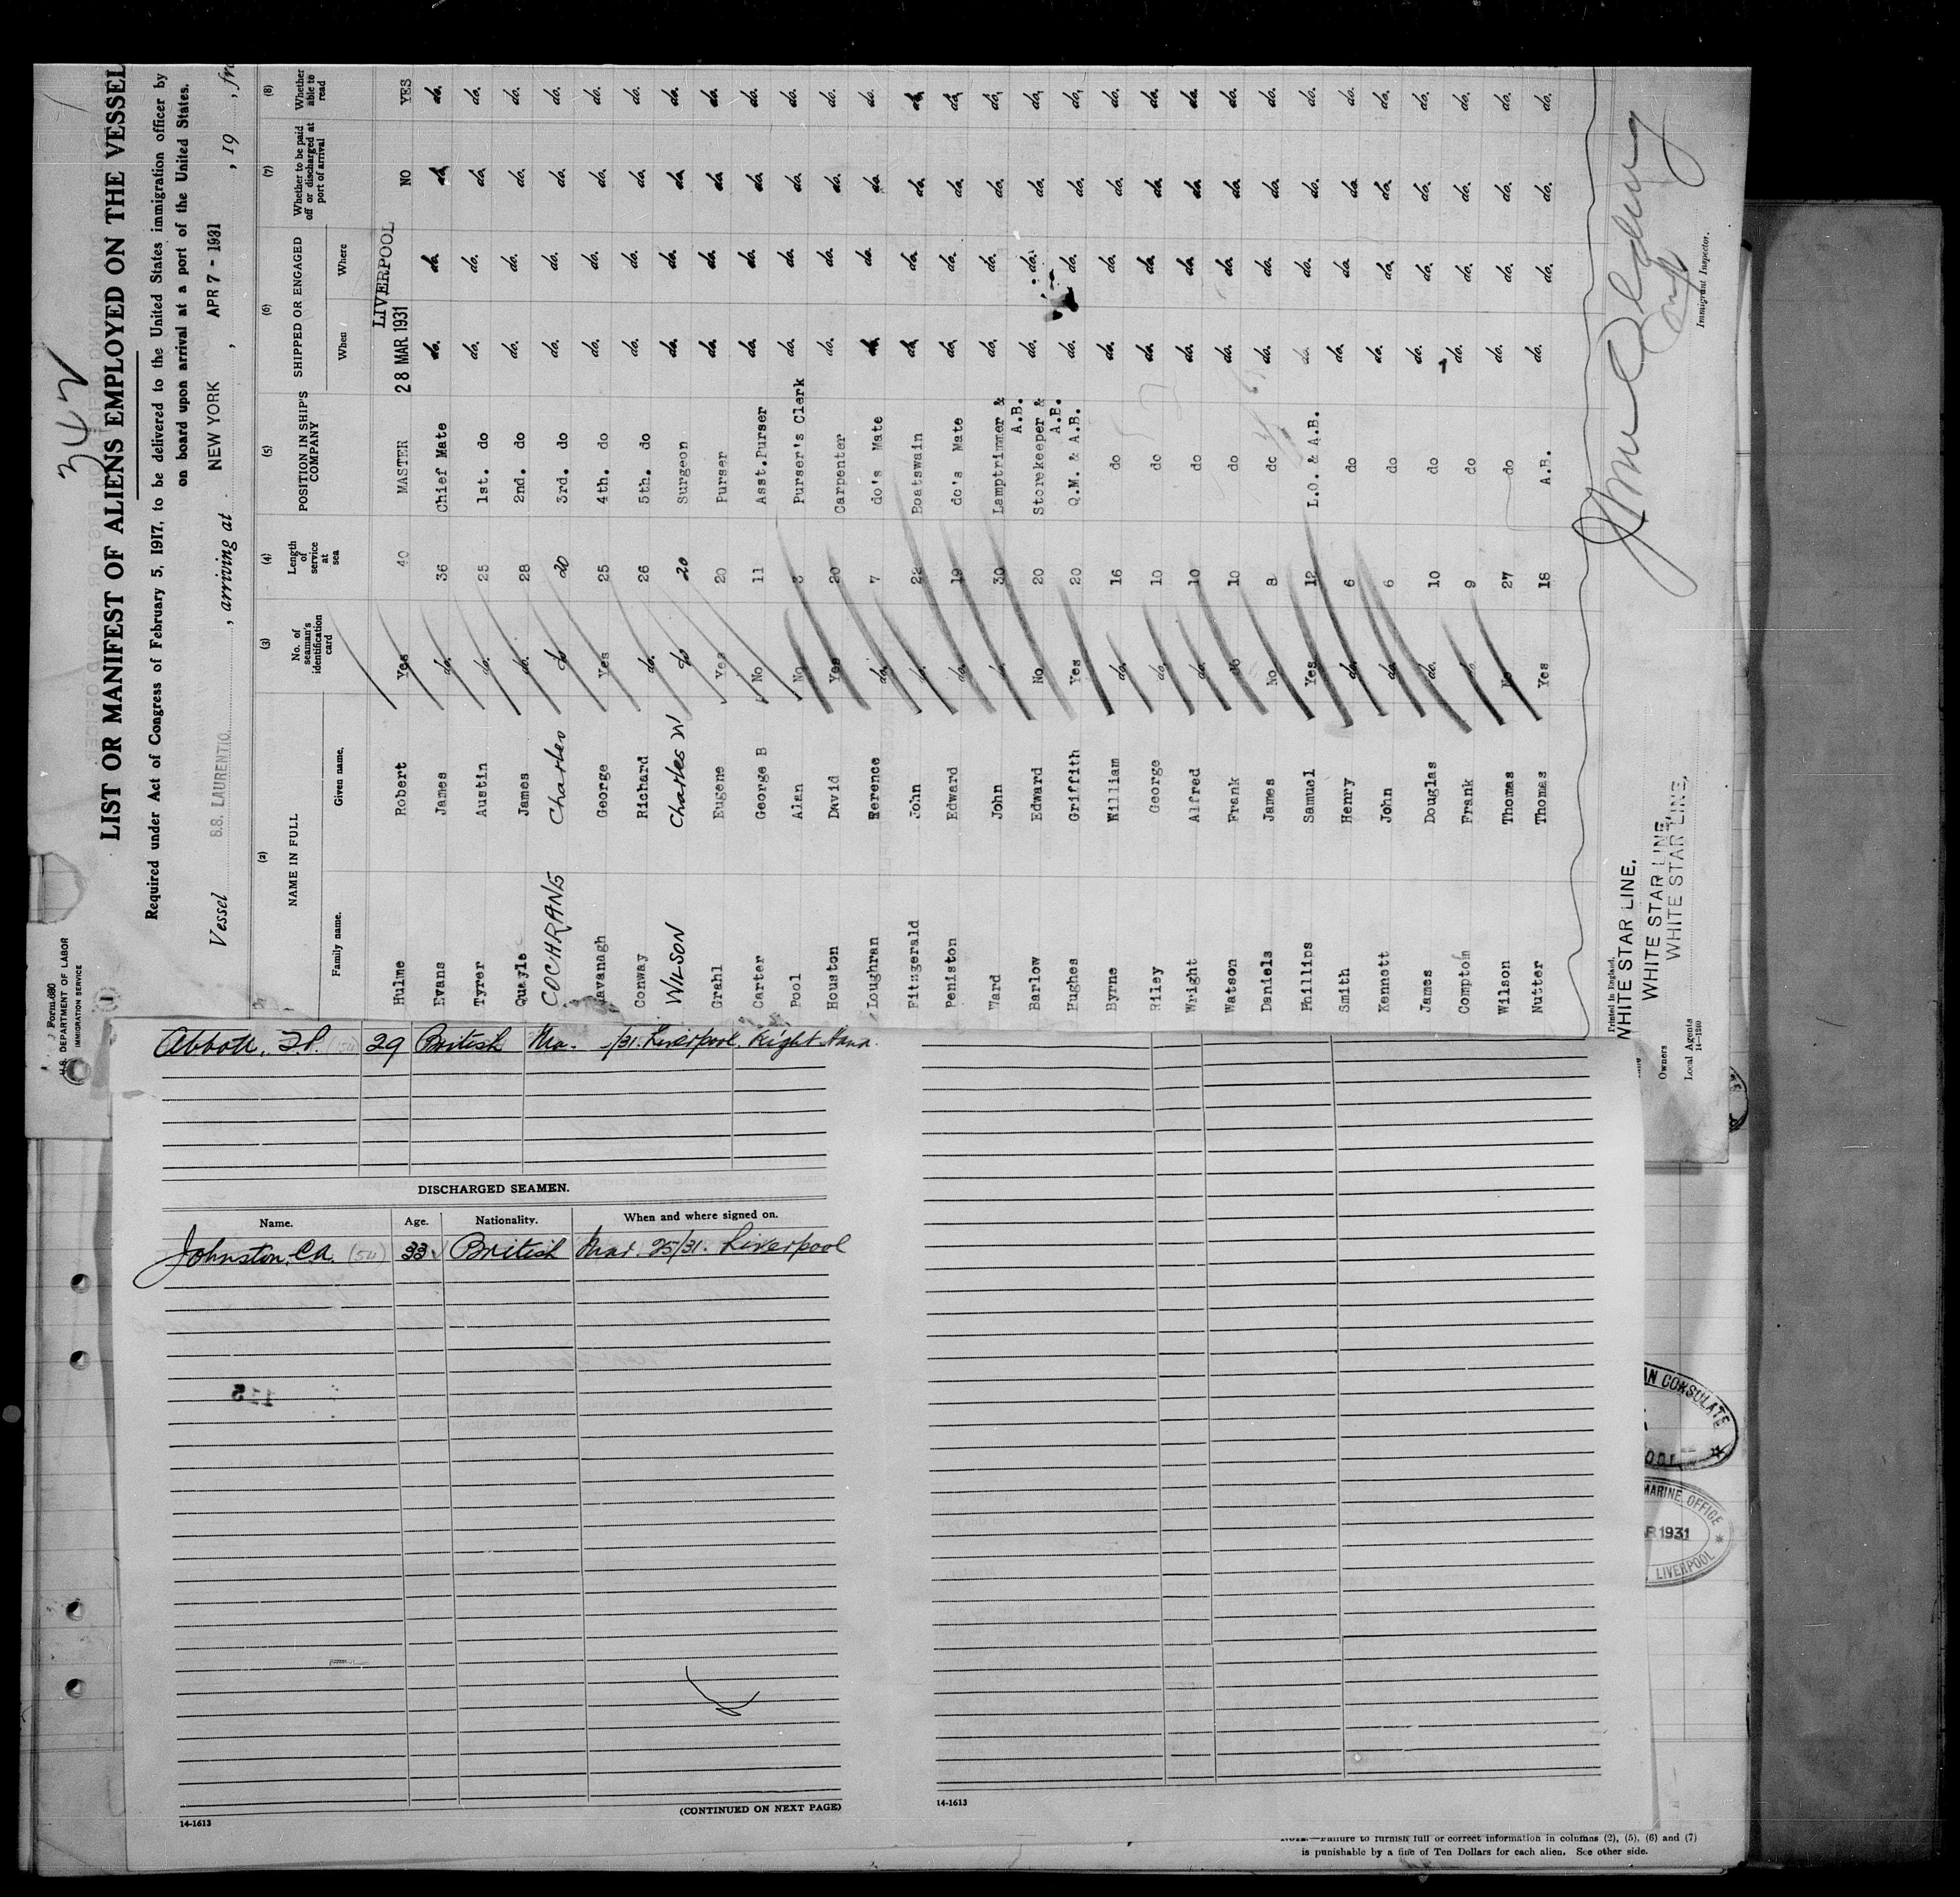 342
Form 680
U.S. DEPARTMENT OF LABOR
IMMIGRATION SERVICE
LIST OR MANIFEST OF ALIENS EMPLOYED ON THE VESSEL
Required under Act of Congress of February 5, 1917, to be delivered to the United States immigration officer by
on board upon arrival at a port of the United States.
Vessel S.S. LAURENTIC, arriving at NEW YORK, APR 7 - 1931, 19
(2) (3) (4) (5) (6) (7) (8)
NAME IN FULL No. of seaman's identification card Length of service at sea POSITION IN SHIP'S COMPANY SHIPPED OR ENGAGED Whether to be paid off or discharged at port of arrival Whether able to read
Family name. Given name. When Where
Hulme Robert Yes 40 MASTER 28 MAR 1931 LIVERPOOL NO YES
Evans James do. 36 Chief Mate do. do. do. do.
Tyrer Austin do. 25 1st. do do. do. do. do.
Quayle James do. 28 2nd. do do. do. do. do.
COCHRANE Charles do 20 3rd. do do. do. do. do.
Kavanagh George Yes 25 4th. do do. do. do. do.
Conway Richard do. 26 5th. do do. do. do. do.
WILSON Charles W do 20 Surgeon do. do. do. do.
Grahl Eugene Yes 20 Purser do. do. do. do.
Carter George B No 11 Asst.Purser do. do. do. do.
Pool Alan No 3 Purser's Clerk do. do. do. do.
Houston David Yes 20 Carpenter do. do. do. do.
Loughran Terence do. 7 do's Mate do. do. do. do.
Fitzgerald John do. 22 Boatswain do. do. do. do.
Peniston Edward do. 19 do's Mate do. do. do. do.
Ward John do. 30 Lamptrimmer & A.B. do. do. do. do.
Barlow Edward No 20 Storekeeper & A.B. do. do. do. do.
Hughes Griffith Yes 20 Q.M. & A.B. do. do. do. do.
Byrne William do. 16 do do. do. do. do.
Riley George do. 10 do do. do. do. do.
Wright Alfred do. 10 do do. do. do. do.
Watson Frank do 10 do do. do. do. do.
Daniels James No 8 do do. do. do. do.
Phillips Samuel Yes 12 L.O. & A.B. do. do. do. do.
Smith Henry do. 6 do do. do. do. do.
Kennett John do. 6 do do. do. do. do.
James Douglas do. 10 do do. do. do. do.
Compton Frank do. 9 do do. do. do. do.
Wilson Thomas No 27 do do. do. do. do.
Nutter Thomas Yes 18 A.B. do. do. do. do.
Printed in England.
WHITE STAR LINE,
WHITE STAR LINE,
WHITE STAR LINE,
Owners
Local Agents
14-1240
Immigrant Inspector.
Abbott, 29 British Liverpool.
DISCHARGED SEAMEN.
Name. Age. Nationality. When and where signed on.
Johnston, C.A. (54) 33 British Mar. 25/31. Liverpool
(CONTINUED ON NEXT PAGE)
14-1613
14-1613
AN CONSULATE
MARINE OFFICE
R 1931
LIVERPOOL
NOTE.—Failure to furnish full or correct information in columns (2), (5), (6) and (7)
is punishable by a fine of Ten Dollars for each alien. See other side.